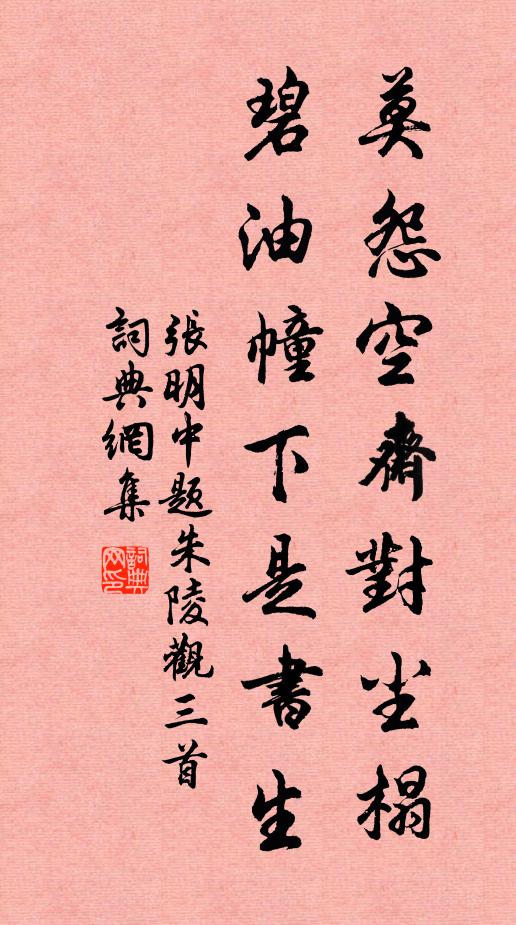 莫怨空齋對尘榻
碧油幢下是書生
張明中題朱陵觀三首
詞典網集
詞典网印